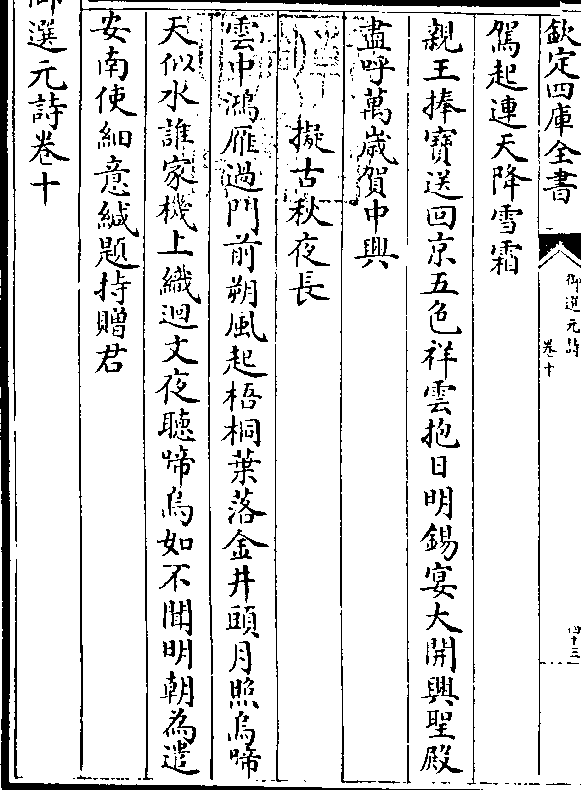 欽定四庫全書
御選元詩
卷十
四十三
駕起連天降雪霜
親王捧寶送回京五色祥雲抱日明錫宴大開興聖殿
盡呼萬嵗賀中興
擬古秋夜長
雲中鴻雁過門前朔風起梧桐葉落金井頭月照烏啼
天似水誰家機上織迴文夜聽啼烏如不聞明朝為遣
安南使細意緘題持贈君
御選元詩卷十